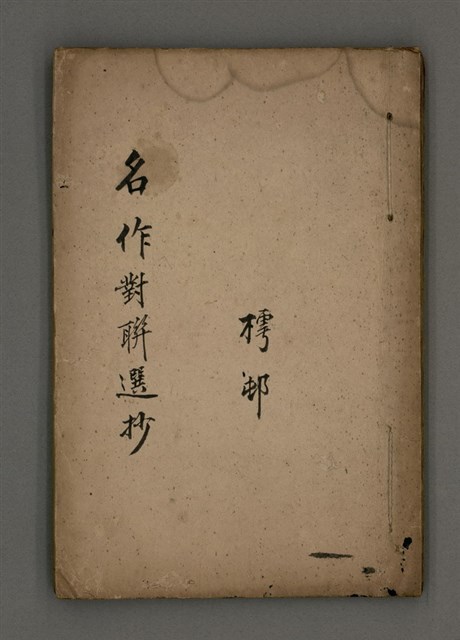 樗邨
名作對聯選抄